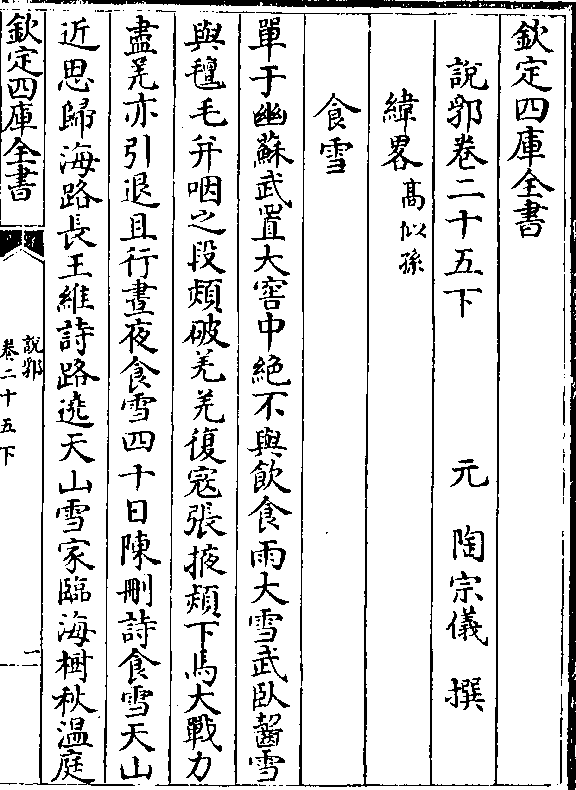 欽定四庫全書
說郛卷二十五下
元 陶宗儀 撰
緯畧高似孫
食雪
單于幽蘇武置大窖中絶不與飲食雨大雪武臥齧雪
與氊毛并咽之段熲破羌羌復宼張掖熲下馬大戰力
盡羌亦引退且行晝夜食雪四十日陳刪詩食雪天山
近思歸海路長王維詩路遶天山雪家臨海樹秋温庭
欽定四庫全書
說郛
卷二十五下
一